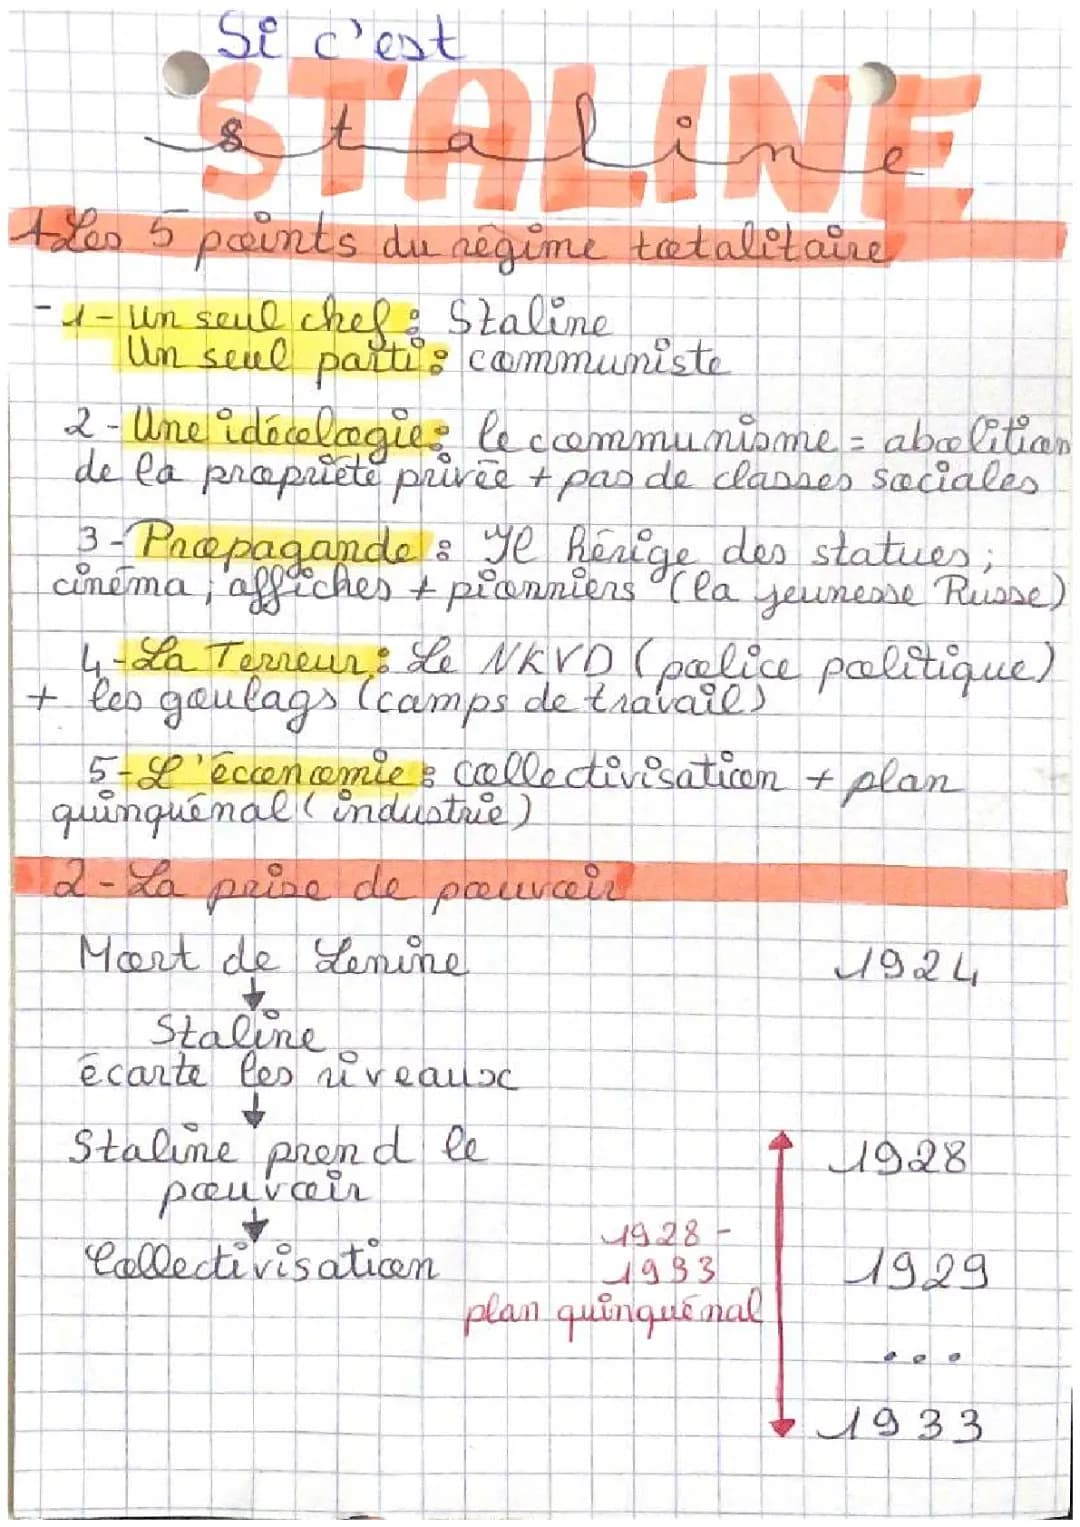 Si c'est
STALINE
staline
1 Les 5 points du régime totalitaire
- 1 - Un seul chef : Staline
Un seul parti : communiste
2 - Une idéologie : le communisme = abolition
de la propriété privée + pas de classes sociales
3 - Propagande : Il hérige des statues ;
cinéma ; affiches + pionniers (la jeunesse Russe)
4 - La Terreur : Le NKVD (police politique)
+ les goulags (camps de travail)
5 - L'économie : collectivisation + plan
quinquénal (industrie)
2 - La prise de pouvoir
Mort de Lenine 1924
Staline
écarte les riveaux
Staline prend le 1928
pouvoir
1928 -
Collectivisation 1933 1929
plan quinquénal
...
1933